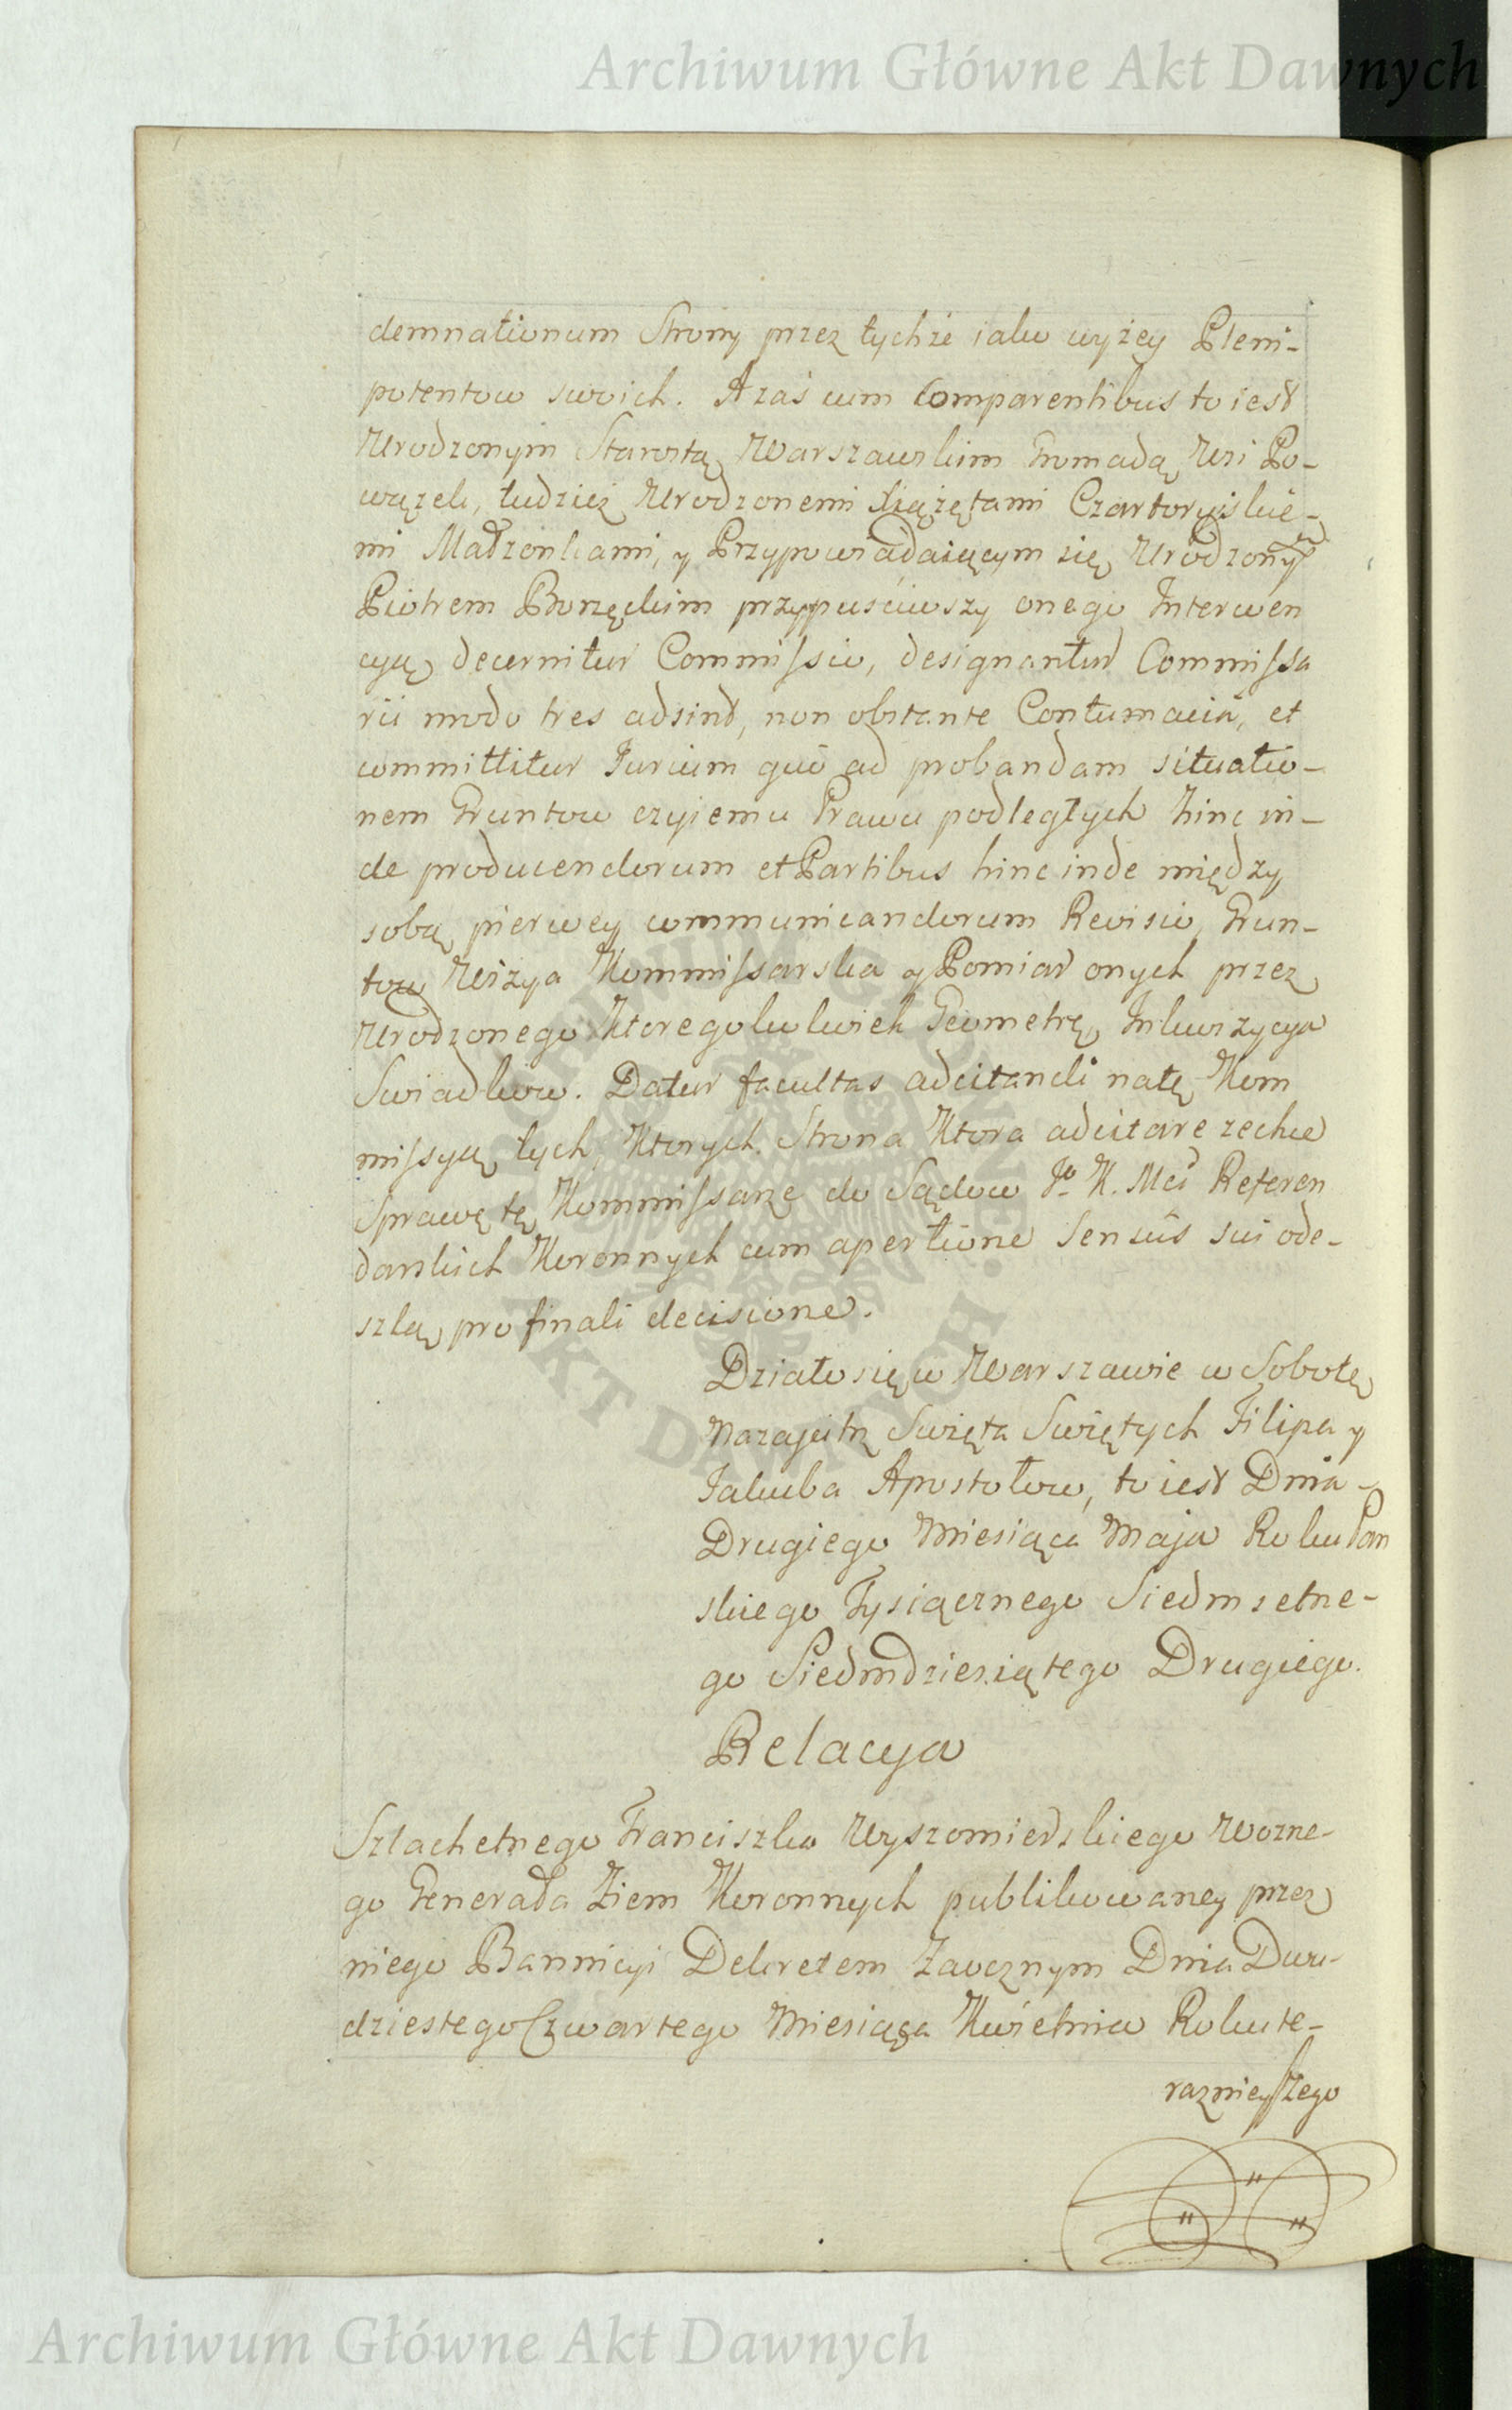 Archiwum Główne Akt Dawnych
demnationum Strony przez tychże iako wyżey Pleni-
potentow swoich. A zaś cum Comparentibus to iest
Urodzonym Starostą Warszawskim Gromadą Wsi Po-
wązek, tudzież Urodzonemi Xiążętami Czartoryiskie-
mi Małżonkami, y Przypowiadaiącym się Urodzonym
Piotrem Borzęckim przypuściwszy onego Interwen
cyą decernitur Commissio, designantur Commissa
rii modo tres adsint, non obstante Contumaciâ, et
committitur Iurium quò ad probandam situatio-
nem Gruntow czyiemu Prawu podległych hinc in-
de producendorum et Partibus hinc inde między
sobą pierwey communicandorum Revisio, Grun-
tow Wizya Kommissarska y Pomiar onych przez
Urodzonego Ktoregokolwiek Geometrę, Inkwizycya
Swiadkow. Datur facultas adcitandi na tę Kom
missyą tych, Ktorych Strona Ktora adcitare zechce
Sprawę tę Kommissarze do Sądow Jo K. Mci Referen
darskich Koronnych cum apertione Sensûs sui ode-
szlą pro finali decisione.
Działo się w Warszawie w Sobotę
Nazajutrz Swięta Swiętych Filipa y
Jakuba Apostołow, to iest Dnia
Drugiego Miesiąca Maja Roku Pań
skiego Tysiącznego Siedmsetne-
go Siedmdziesiątego Drugiego.
Relacya
Szlachetnego Franciszka Wyszomierskiego Wozne-
go Generała Ziem Koronnych publikowaney przez
niego Bannicyi Dekretem Zaocznym Dnia Dwu-
dziestego Czwartego Miesiąca Kwietnia Roku te-
raznieyszego
ARCHIWUM GŁÓWNE AKT DAWNYCH
Archiwum Główne Akt Dawnych